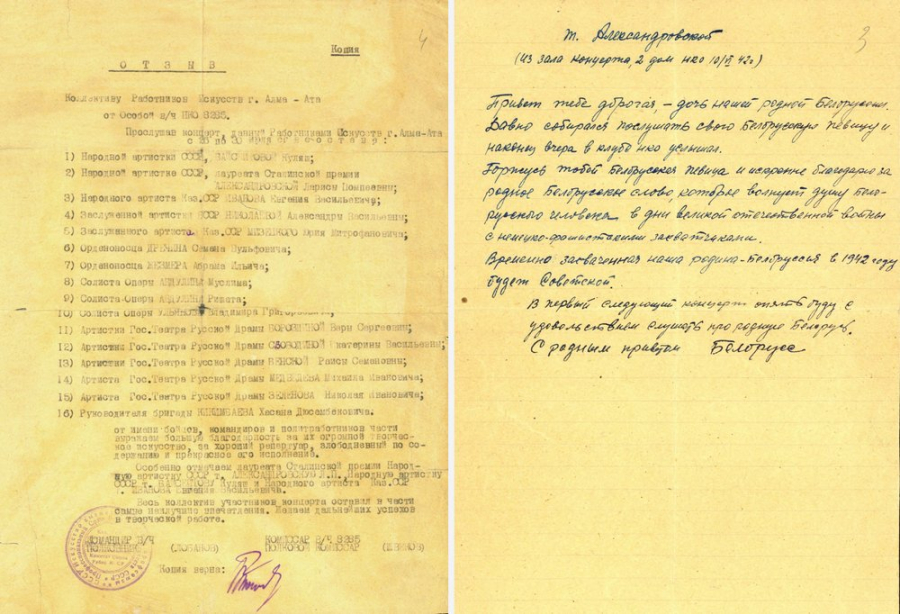 Копия
4
О Т З Ы В
Коллективу Работников Искусств г. Алма - Ата
от Особой в/ч НКО 8285.
Прослушав концерт, данный Работниками Искусств г. Алма-Ата
с 28 до 30
1) Народной артистки СССР, Куляш;
2) Народной артистке СССР, лауреата Сталинской премии
АЛЕКСАНДРОВСКОЙ Ларисы Помпеевны;
3) Народного артиста Каз.ССР ИВАНОВА Евгения Васильевича;
4) Заслуженной артистки ССР Александры Васильевны;
5) Заслуженного артиста Каз.ССР Юрия Митрофановича;
6) Орденоносца Семена Вульфовича;
7) Орденоносца Абрама Ильича;
8) Солиста Оперы АБДУЛИНА Муслима;
9) Солиста Оперы АБДУЛИНА Ришета;
10) Солиста Оперы Владимира
11) Артистки Гос.Театра Русской Драмы Веры Сергеевны;
12) Артистки Гос.Театра Русской Драмы Екатерины Васильевны;
13) Артистки Гос.Театра Русской Драмы Раисы Семеновны;
14) Артиста Гос.Театра Русской Драмы МЕДВЕДЕВА Михаила Ивановича;
15) Артиста Гос.Театра Русской Драмы Николая Ивановича;
16) Руководителя бригады Хасана Джсамбековича.
от имени бойцов, командиров и политработников части
выражаем большую благодарность за их огромной творчес-
кое искусство, за хороший репертуар, злободневный по со-
держанию и прекрасное его исполнений.
Особенно отмечаем лауреата Сталинской премии Народ-
ную артистку СССР т. АЛЕКСАНДРОВСКУЮ Л.П., Народную артистку
СССР т. Куляш и Народного артиста Каз.ССР
т. ИВАНОВА Евгения Васильевича.
Весь коллектив участников концерта оставил в части
самые наилучшие впечатления. Желаем дальнейших успехов
в творческой работе.
КОМАНДИР В/Ч КОМИССАР В/Ч 8285
ПОЛКОВНИК (ЛОБАНОВ) ПОЛКОВОЙ КОМИССАР
Копия верна:
3
т. Александровской
(из зала концерта, 2 дом НКО 10/VI 42г)
Привет тебе дорогая, - дочь нашей родной Белоруссии.
Давно собирался послушать свою Белорусскую певицу и
наконец вчера в клубе НКО услышал.
Горжусь тобой Белорусская певица и искренне благодарю за
родное Белорусское слово, которое волнует душу Бело-
русского человека в дни великой отечественной войны
с немецко-фашистскими захватчиками.
Временно захваченная наша родина-Белоруссия в 1942 году
будет Советской.
В первый следующий концерт опять буду с
удовольствием слушать про родную Беларусь.
С родным приветом Белорусс